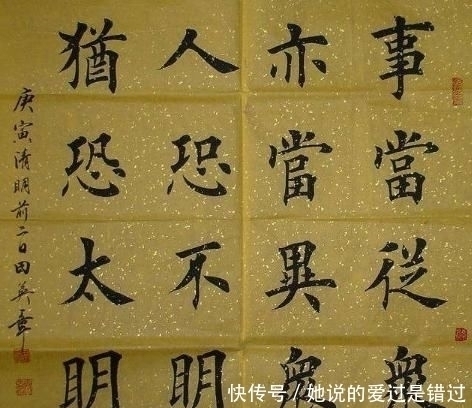 事當從衆
亦當異衆
人恐不明
猶恐太明
庚寅清明前二日田英章
快传号/她说的爱过是错过